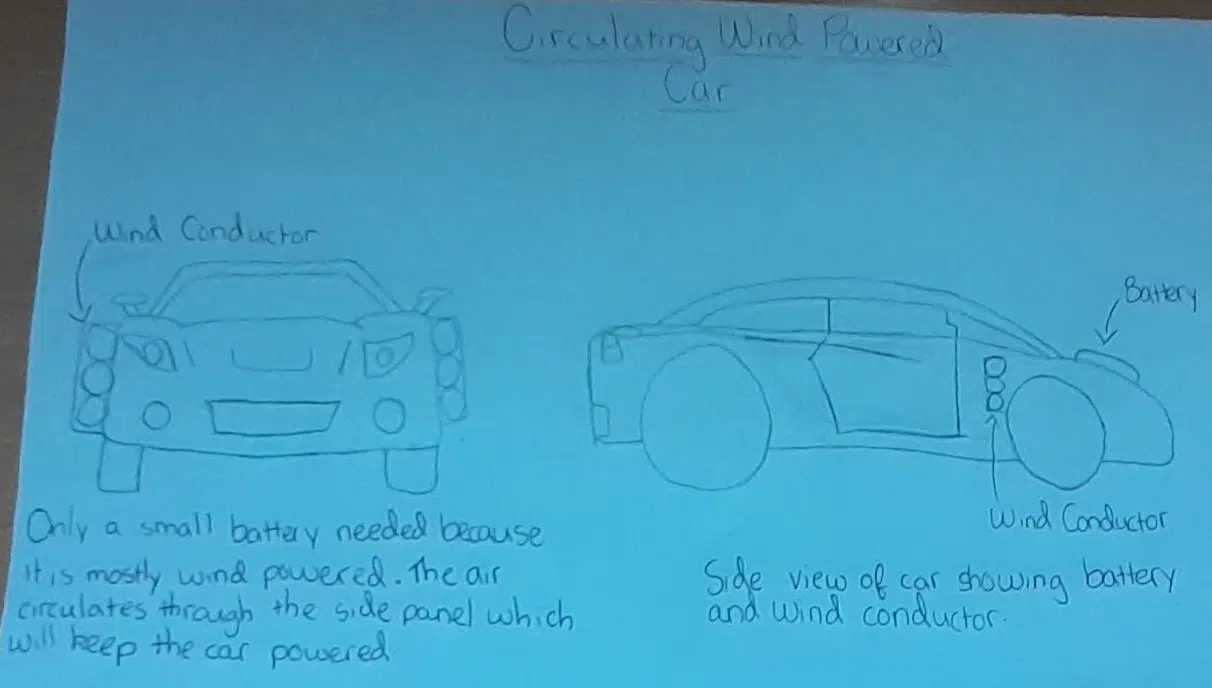 Circulating Wind Powered
Car
Wind Conductor
Battery
Wind Conductor
Only a small battery needed because
it is mostly wind powered. The air
circulates through the side panel which
will keep the car powered.
Side view of car showing battery
and wind conductor.